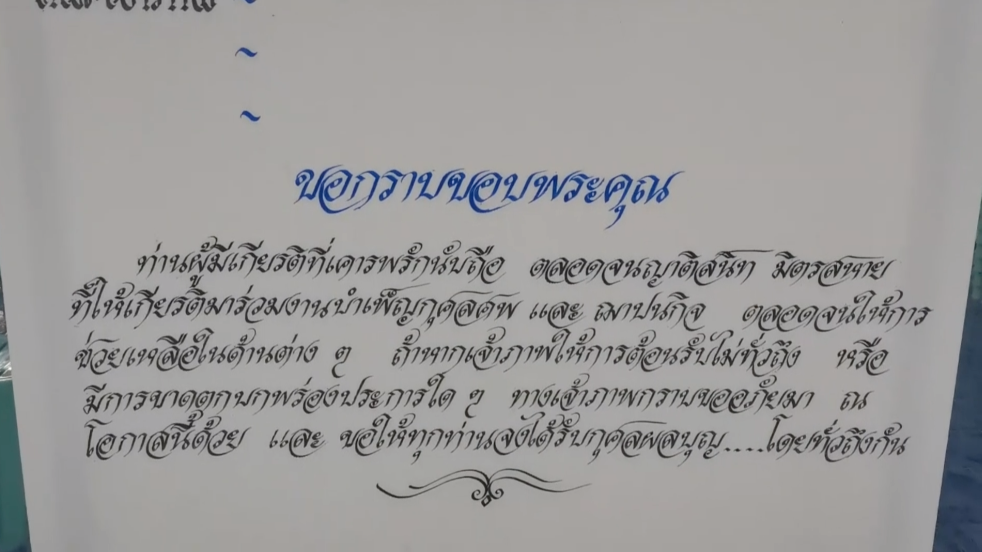 ขอกราบขอบพระคุณ
ท่านผู้มีเกียรติที่เคารพรักนับถือ ตลอดจนญาติสนิท มิตรสหาย
ที่ให้เกียรติมาร่วมงานบำเพ็ญกุศลศพ และ ฌาปนกิจ ตลอดจนให้การ
ช่วยเหลือในด้านต่าง ๆ ถ้าหากเจ้าภาพให้การต้อนรับไม่ทั่วถึง หรือ
มีการขาดตกบกพร่องประการใด ๆ ทางเจ้าภาพกราบขออภัยมา ณ
โอกาสนี้ด้วย และ ขอให้ทุกท่านจงได้รับกุศลผลบุญ....โดยทั่วถึงกัน